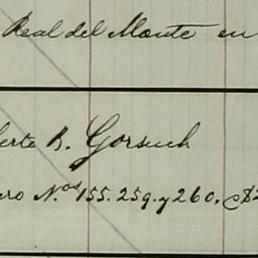 Real del Monte en
berto R. Gorsuch
ero Nos 155. 259. y 260.